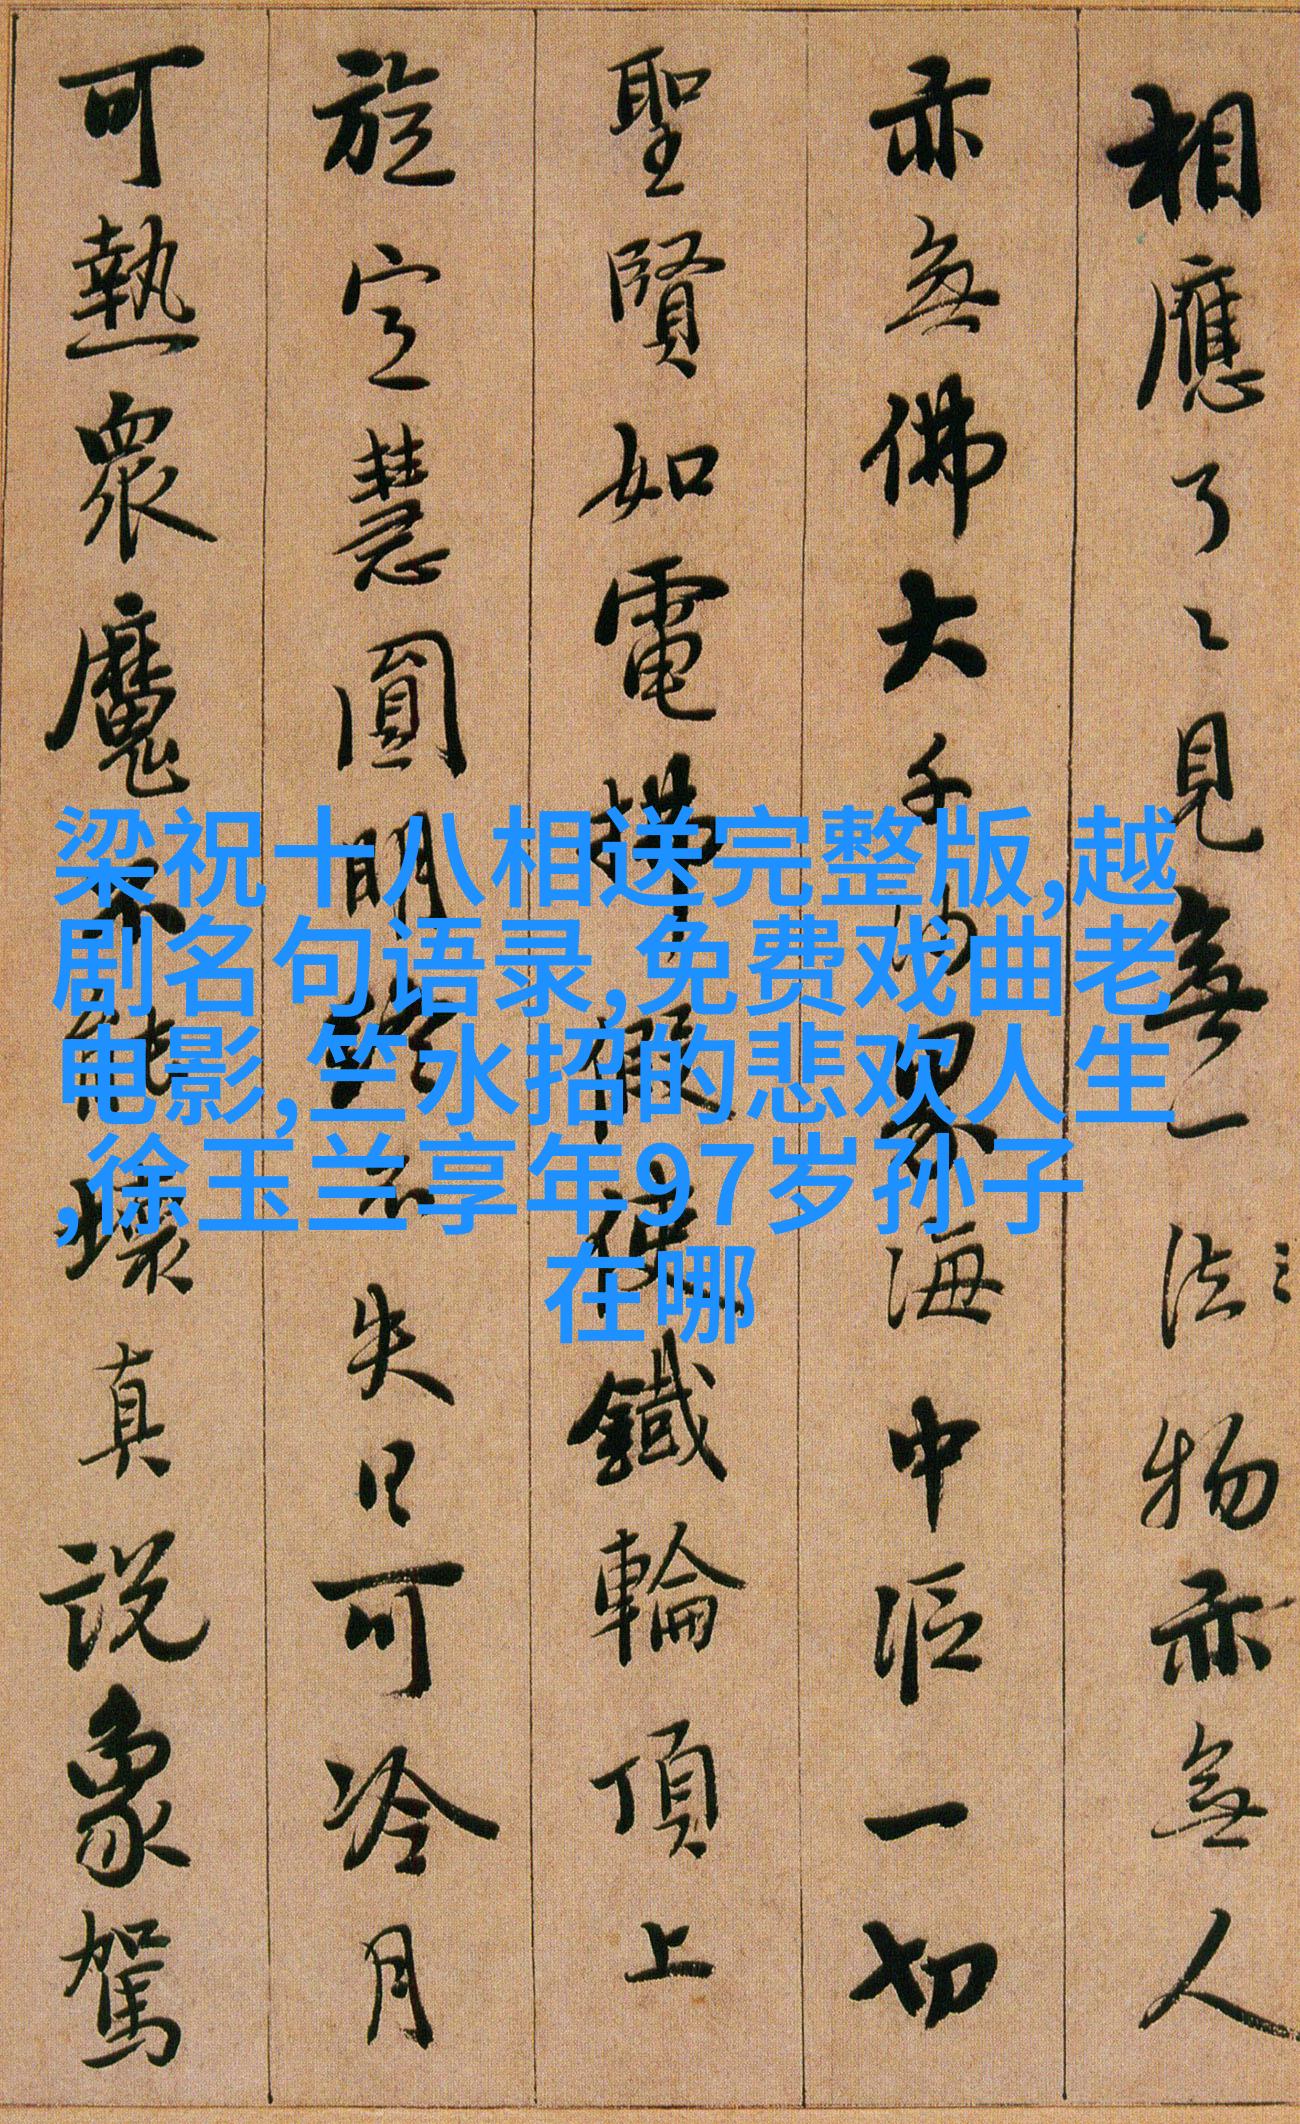 相應了〻見無一法物亦無人
亦無佛大千沙界海中漚一切
聖賢如電假使鐵輪頂上
旋定慧圓明終不失日可冷月
可熱衆魔不能壞真説象駕
梁祝十八相送完整版,越
剧名句语录,免费戏曲老
电影,竺水招的悲欢人生
,徐玉兰享年97岁孙子
在哪